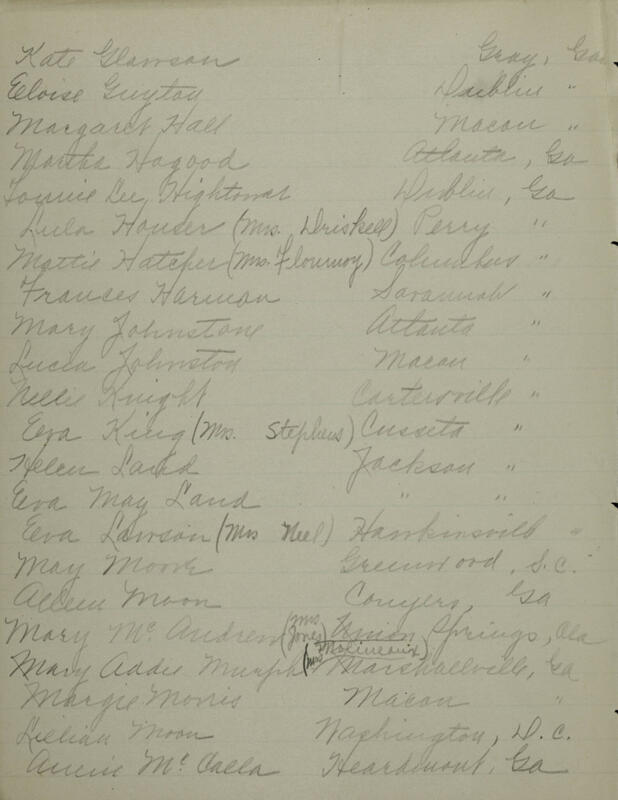 Kate Glawson Gray, Ga
Eloise Guyton Dublin "
Margaret Hall Macon "
Martha Hagood Atlanta, Ga
Lee Hightower Dublin, Ga
Lula Houser (Mrs. Driskell) Perry "
Mattie Hatcher (Mrs. Flournoy) Columbus "
Frances Harmon Savannah "
Mary Johnstone Atlanta "
Lucia Johnston Macon "
Nellie Knight Cartersville "
Eva King (Mrs. Stephens) Cusseta "
Helen Land Jackson "
Eva May Land " "
Eva Lawson (Mrs Neel) Hawkinsville "
May Moore Greenwood, S.C.
Alleen Moon Conyers, Ga
Mary McAndrew (Mrs. Jones) Union Springs, Ala
Mary Addie Murph (Mrs Molineaux) Marshallville, Ga
Margie Morris Macon "
Lillian Moon Washington, D.C.
Annie McCalla Heardmont, Ga